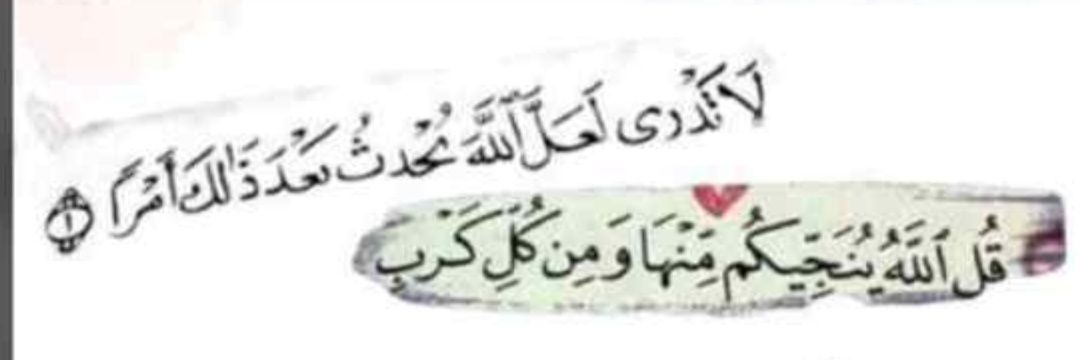 لَا تَدْرِى لَعَلَّ ٱللَّهَ يُحْدِثُ بَعْدَ ذَٰلِكَ أَمْرًا ١
قُلِ ٱللَّهُ يُنَجِّيكُم مِّنْهَا وَمِن كُلِّ كَرْبٍ